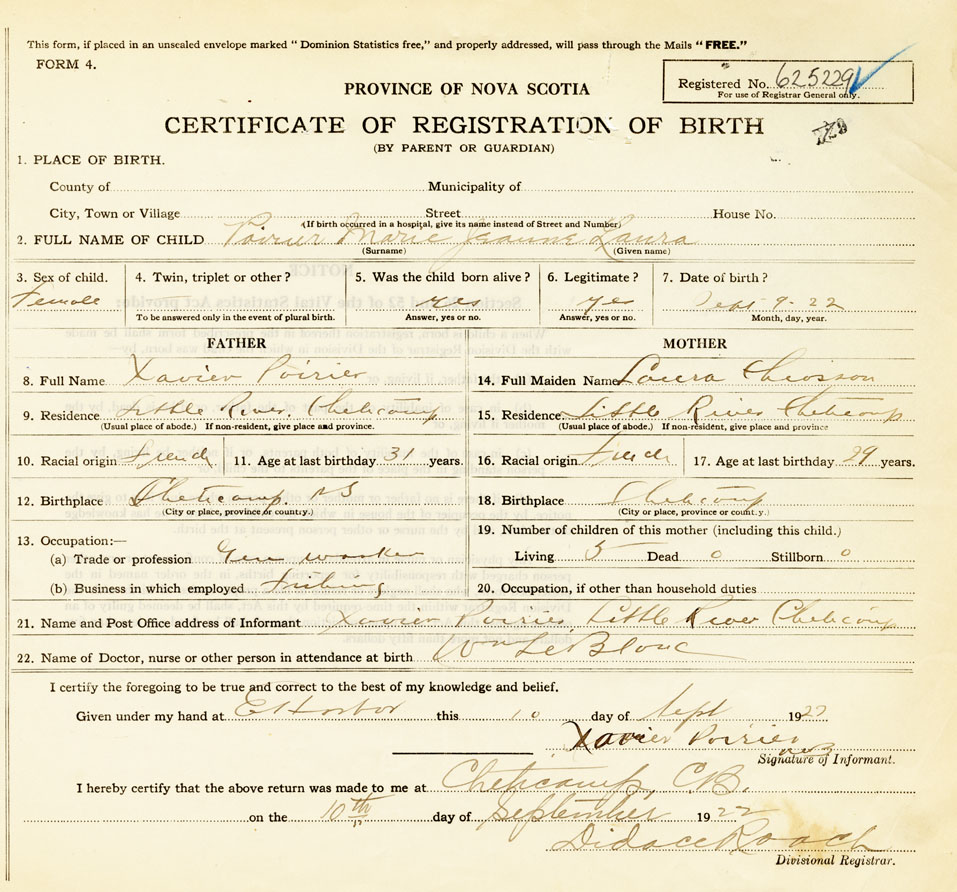 This form, if placed in an unsealed envelope marked "Dominion Statistics free," and properly addressed, will pass through the Mails "FREE."
FORM 4.
Registered No. 625229
For use of Registrar General only.
PROVINCE OF NOVA SCOTIA
CERTIFICATE OF REGISTRATION OF BIRTH
(BY PARENT OR GUARDIAN)
1. PLACE OF BIRTH.
County of Municipality of
City, Town or Village Street House No.
(If birth occurred in a hospital, give its name instead of Street and Number)
2. FULL NAME OF CHILD Poirier Marie Jeanne Laura
(Surname) (Given name)
3. Sex of child. 4. Twin, triplet or other? 5. Was the child born alive? 6. Legitimate? 7. Date of birth?
Female yes yes Sept 9-22
To be answered only in the event of plural birth. Answer, yes or no. Answer, yes or no. Month, day, year.
FATHER MOTHER
8. Full Name Xavier Poirier 14. Full Maiden Name Laura Chiasson
9. Residence Little River, Cheticamp 15. Residence Little River Cheticamp
(Usual place of abode.) If non-resident, give place and province. (Usual place of abode.) If non-resident, give place and province
10. Racial origin French 11. Age at last birthday 31 years. 16. Racial origin French 17. Age at last birthday 29 years.
12. Birthplace Cheticamp NS 18. Birthplace Cheticamp
(City or place, province or country.) (City or place, province or count.y.)
13. Occupation:— 19. Number of children of this mother (including this child.)
(a) Trade or profession Gen worker Living 5 Dead 0 Stillborn 0
(b) Business in which employed Fishing 20. Occupation, if other than household duties
21. Name and Post Office address of Informant Xavier Poirier, Little River Cheticamp
22. Name of Doctor, nurse or other person in attendance at birth Wm LeBlanc
I certify the foregoing to be true and correct to the best of my knowledge and belief.
Given under my hand at E Harbor this 10 day of Sept 1922
Xavier Poirier
Signature of Informant.
I hereby certify that the above return was made to me at Cheticamp, C.B.
on the 10th day of September 1922
Didace Roach
Divisional Registrar.